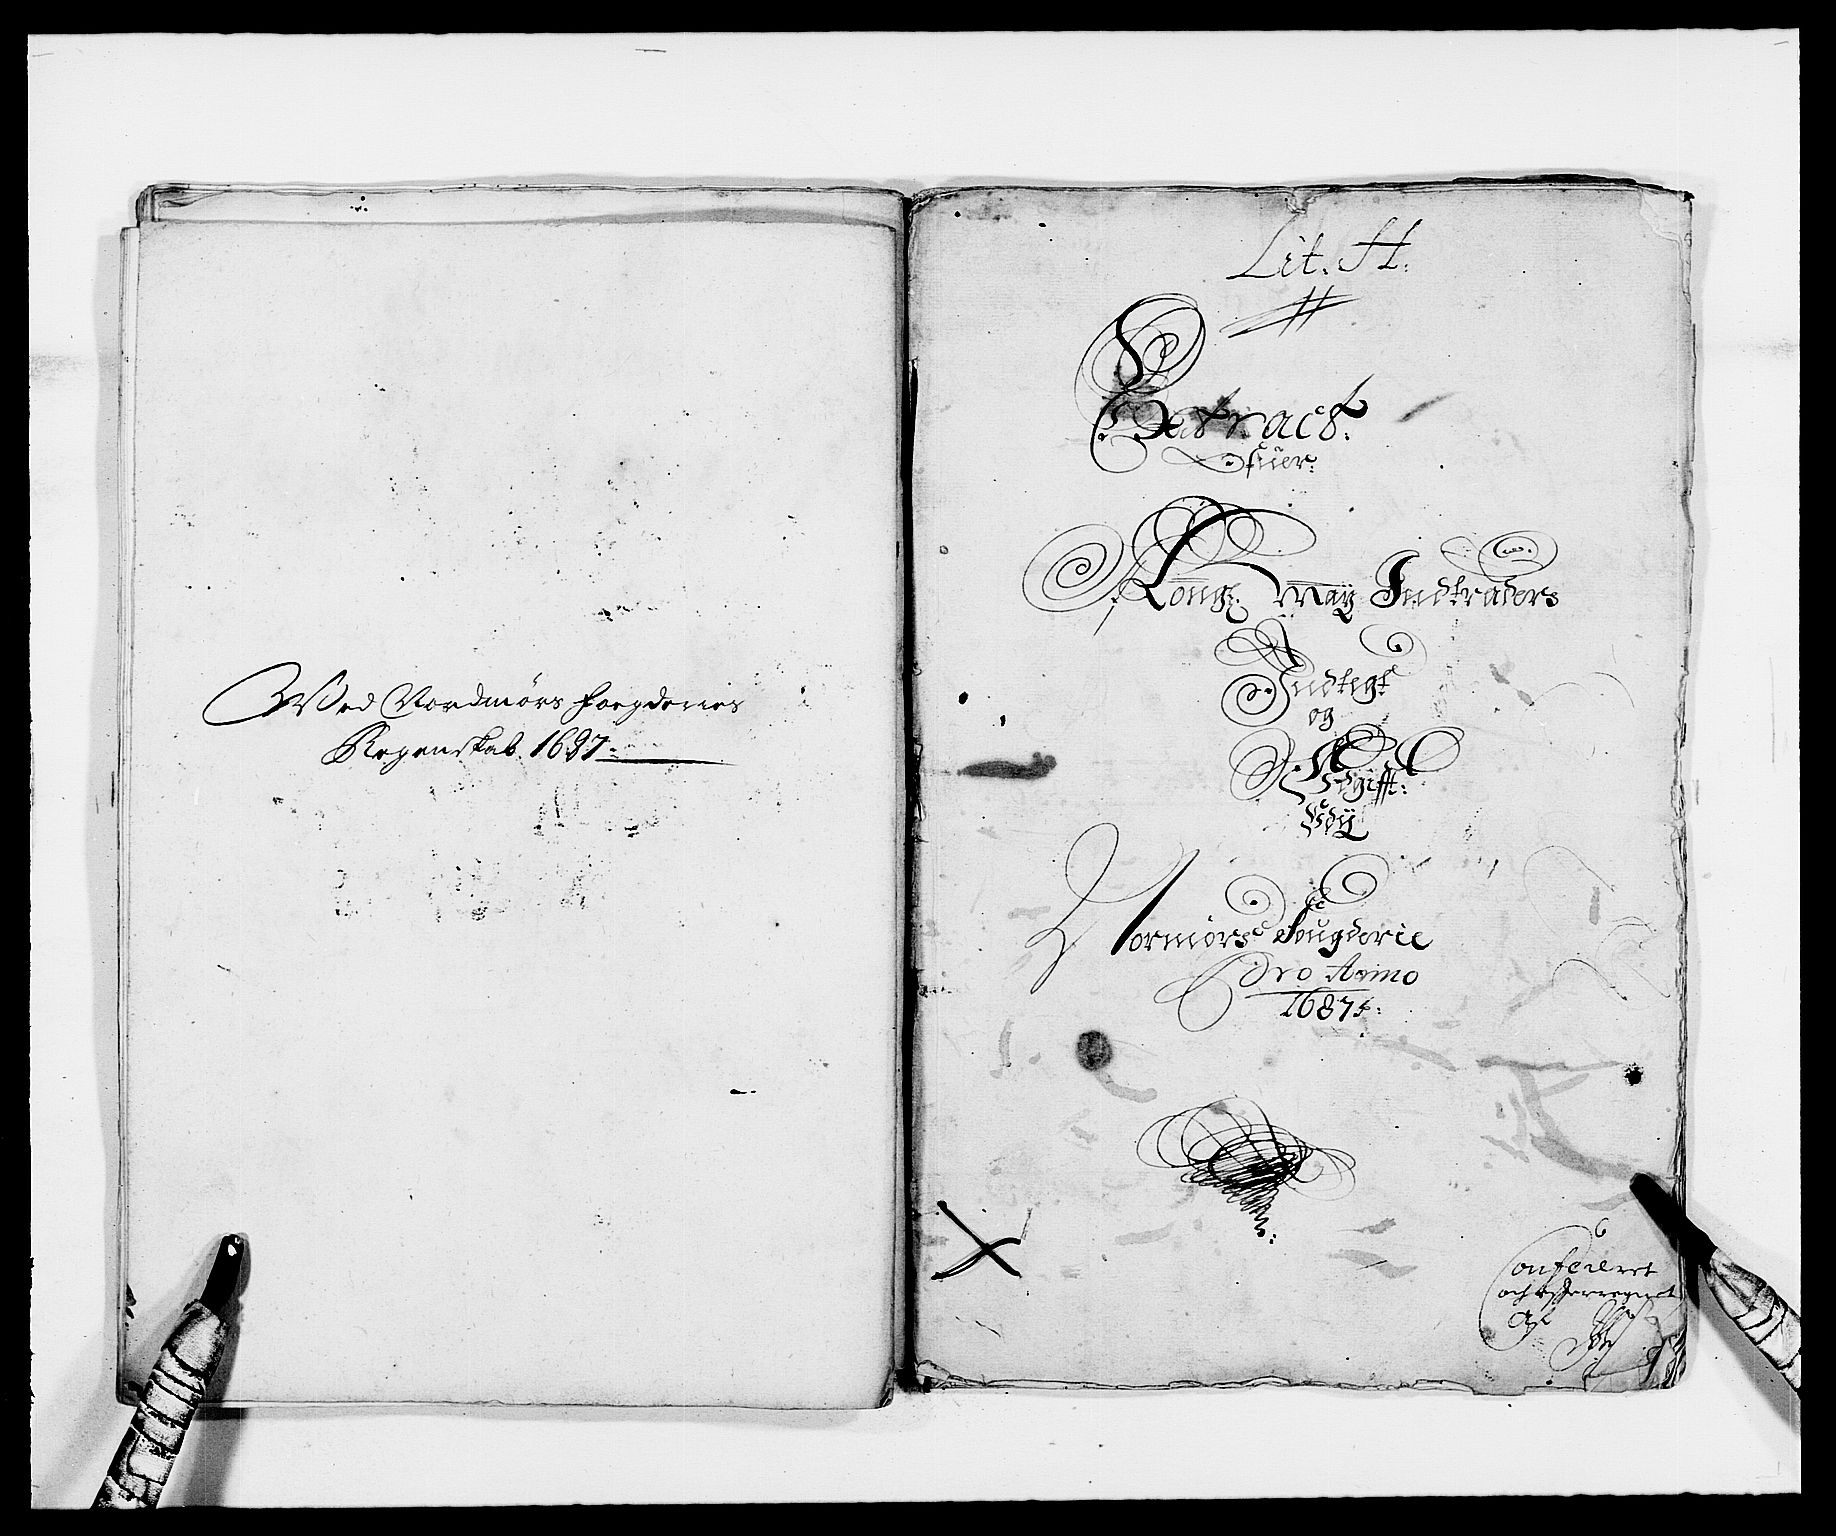 Wed Nordmørs foegderies
Regenskab 1687
Lit. H.
Extract
ofuer
Kong: May Indtraders
Indtegt
og
Udgifft:
Udj
Normørs Fougderie
Pro Anno
1687
Confereret
och efterregnet
af